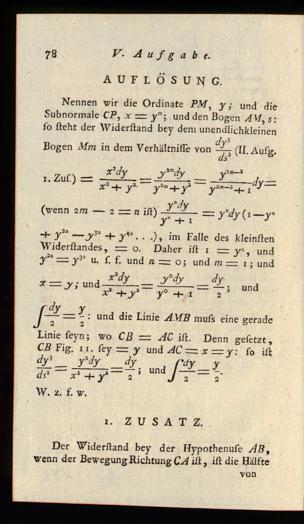 78 V. Aufgabe.
AUFLÖSUNG.
Nennen wir die Ordinate PM, y; und die
Subnormale CP, x = yᵐ; und den Bogen AM, s:
ſo ſteht der Widerſtand bey dem unendlichkleinen
Bogen Mm in dem Verhältniſſe von dy³/ds² (II. Aufg.
1. Zuſ.) = x²dy/(x² + y²) = y²ᵐdy/(y²ᵐ + y²) = y²ᵐ⁻²/(y²ᵐ⁻² + 1) dy =
(wenn 2m — 2 = n iſt) yⁿdy/(yⁿ + 1) = yⁿdy (1 — yⁿ
+ y²ⁿ — y³ⁿ + y⁴ⁿ . . .), im Falle des kleinſten
Widerſtandes, = 0. Daher iſt 1 = yⁿ, und
y²ⁿ = y³ⁿ u. ſ. f. und n = 0; und m = 1; und
x = y; und x²dy/(x² + y²) = y⁰dy/(y⁰ + 1) = dy/2; und
∫dy/2 = y/2: und die Linie AMB muſs eine gerade
Linie ſeyn; wo CB = AC iſt. Denn geſetzt,
CB Fig. 11. ſey = y und AC = x = y: ſo iſt
dy³/ds² = y²dy/(x² + y²) = dy/2; und ∫dy/2 = y/2.
W. z. f. w.
1. ZUSATZ.
Der Widerſtand bey der Hypothenuſe AB,
wenn der Bewegung Richtung CA iſt, iſt die Hälfte
von